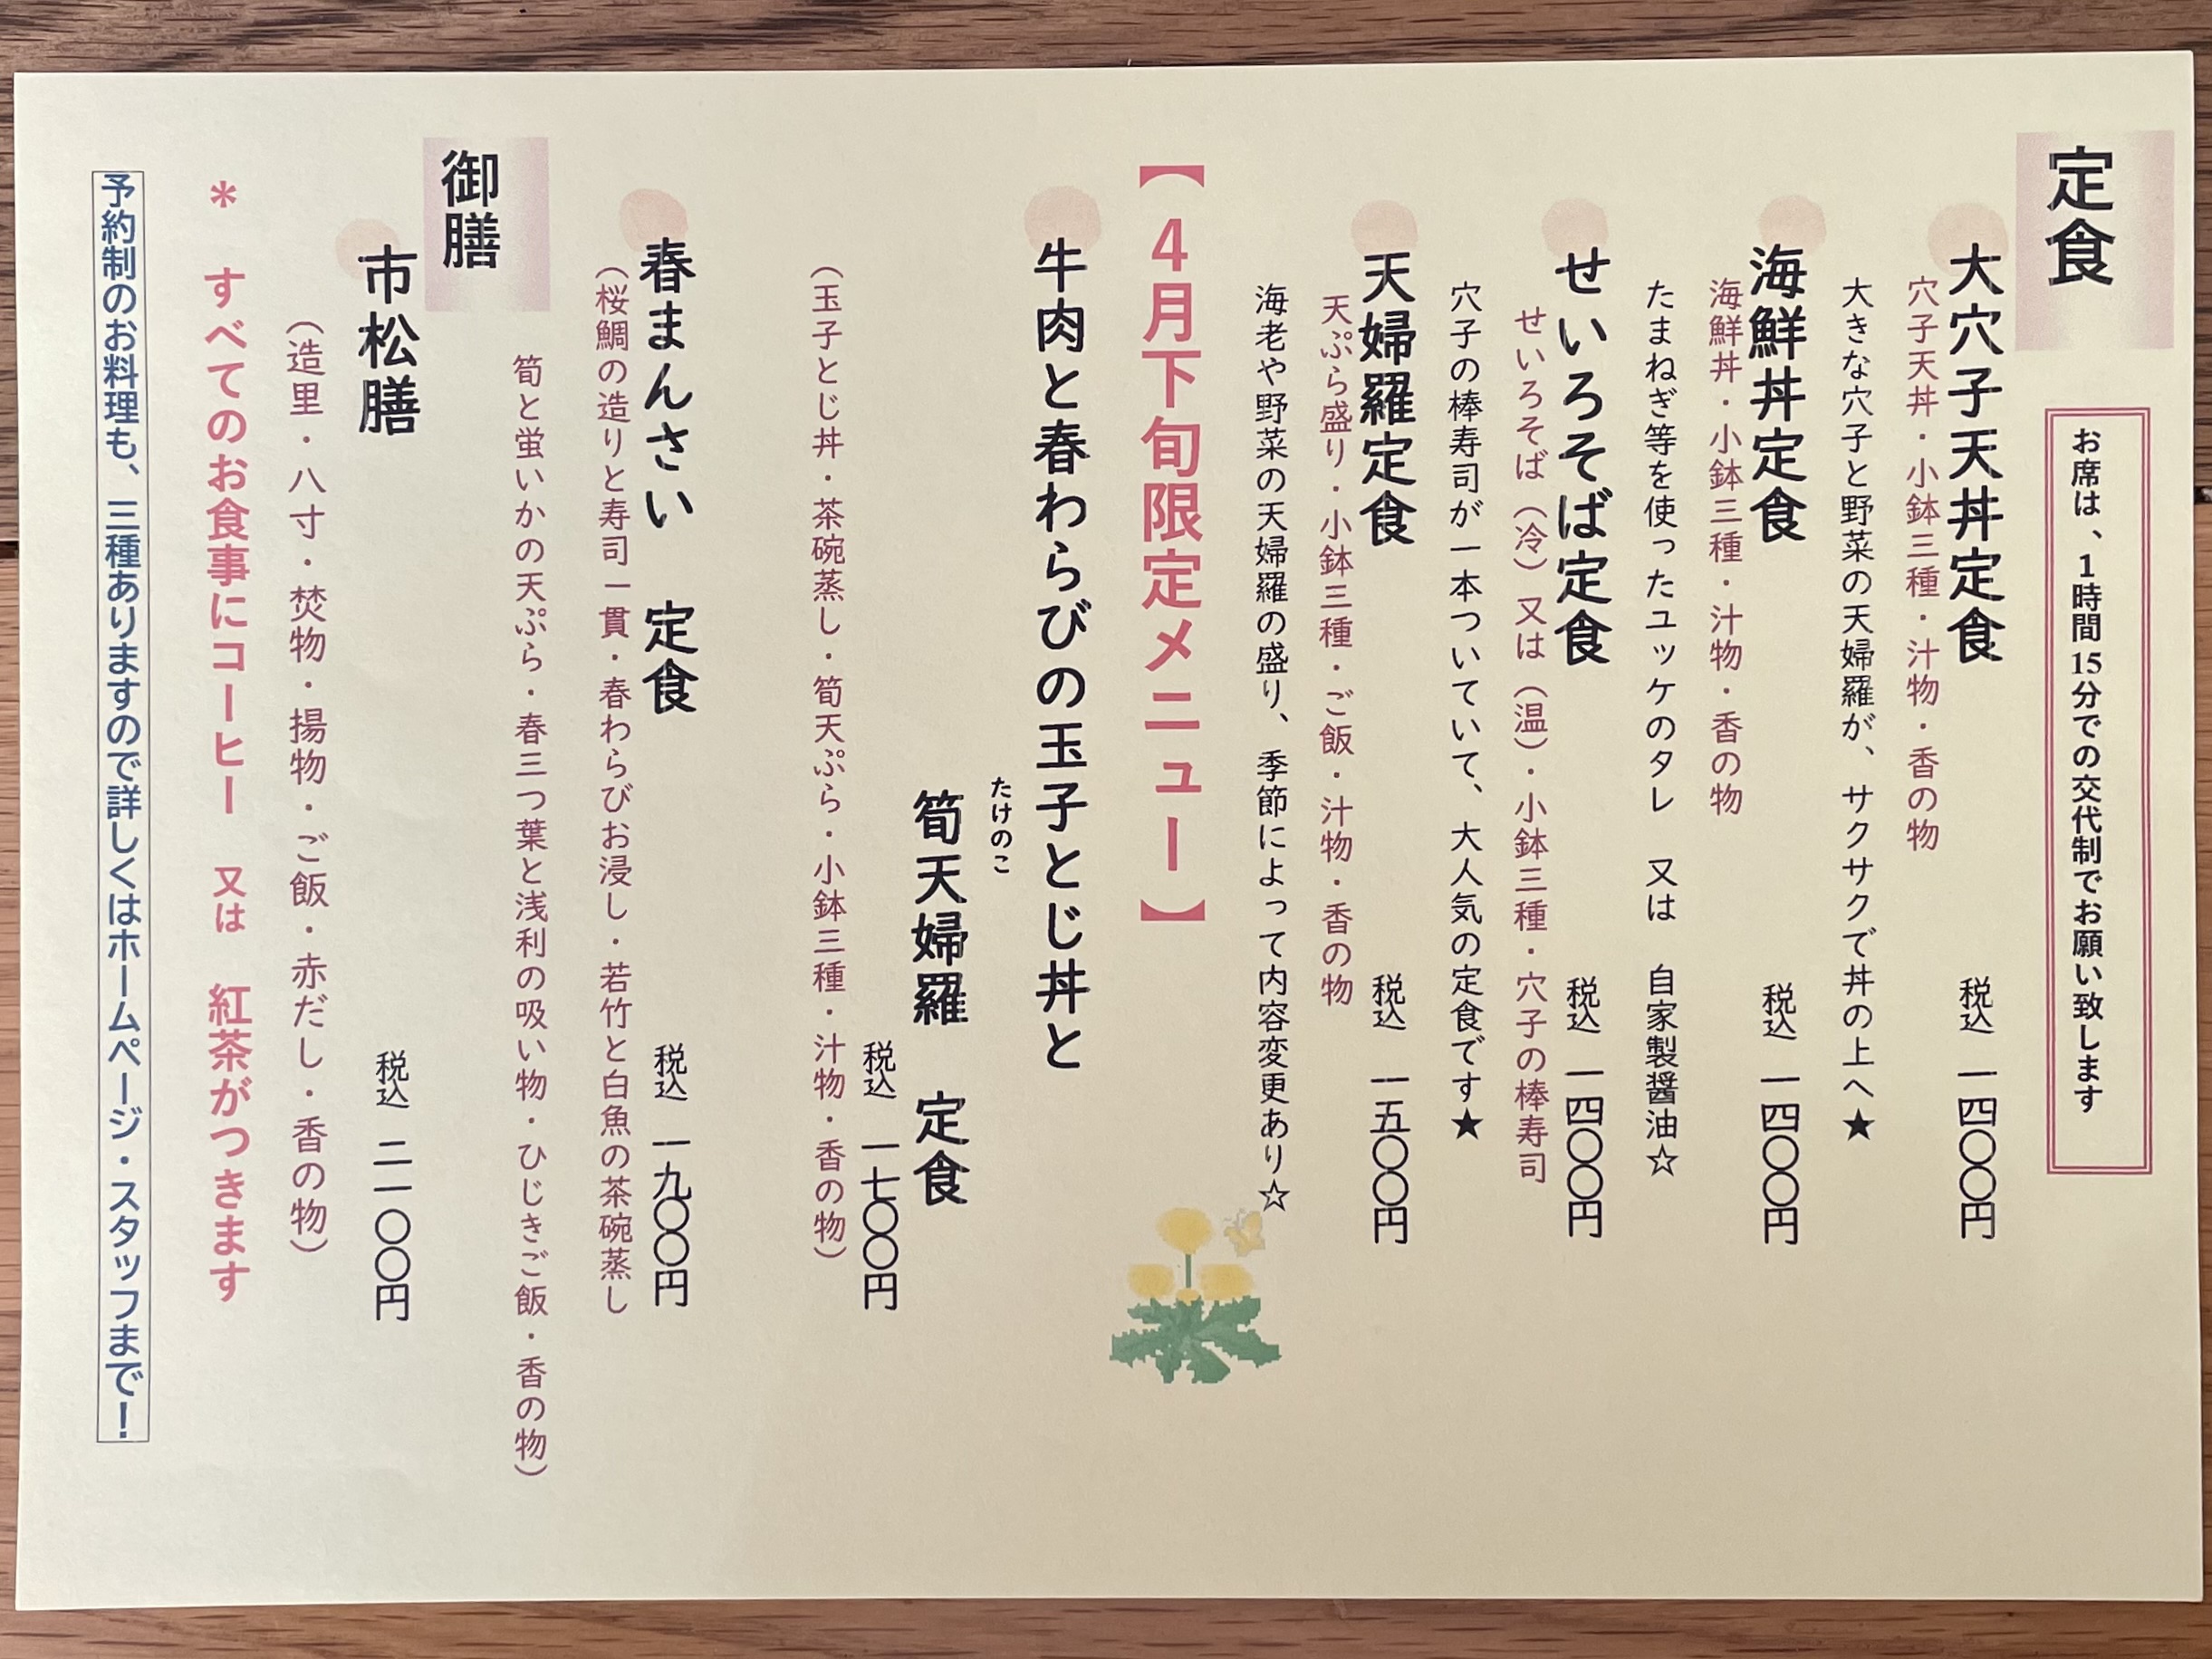 定食
お席は、1時間15分での交代制でお願い致します
大穴子天丼定食　税込　一四〇〇円
穴子天丼・小鉢三種・汁物・香の物
大きな穴子と野菜の天婦羅が、サクサクで丼の上へ★
海鮮丼定食　税込　一四〇〇円
海鮮丼・小鉢三種・汁物・香の物
たまねぎ等を使ったユッケのタレ　又は　自家製醤油☆
せいろそば定食　税込　一四〇〇円
せいろそば（冷）又は（温）・小鉢三種・穴子の棒寿司
穴子の棒寿司が一本ついていて、大人気の定食です★
天婦羅定食　税込　一五〇〇円
天ぷら盛り・小鉢三種・ご飯・汁物・香の物
海老や野菜の天婦羅の盛り、季節によって内容変更あり☆
【4月下旬限定メニュー】
牛肉と春わらびの玉子とじ丼と
たけのこ
筍天婦羅　定食
税込　一七〇〇円
（玉子とじ丼・茶碗蒸し・筍天ぷら・小鉢三種・汁物・香の物）
春まんさい　定食　税込　一九〇〇円
（桜鯛の造りと寿司一貫・春わらびお浸し・若竹と白魚の茶碗蒸し
筍と蛍いかの天ぷら・春三つ葉と浅利の吸い物・ひじきご飯・香の物）
御膳
市松膳　税込　二一〇〇円
（造里・八寸・焚物・揚物・ご飯・赤だし・香の物）
＊　すべてのお食事にコーヒー　又は　紅茶がつきます
予約制のお料理も、三種ありますので詳しくはホームページ・スタッフまで！